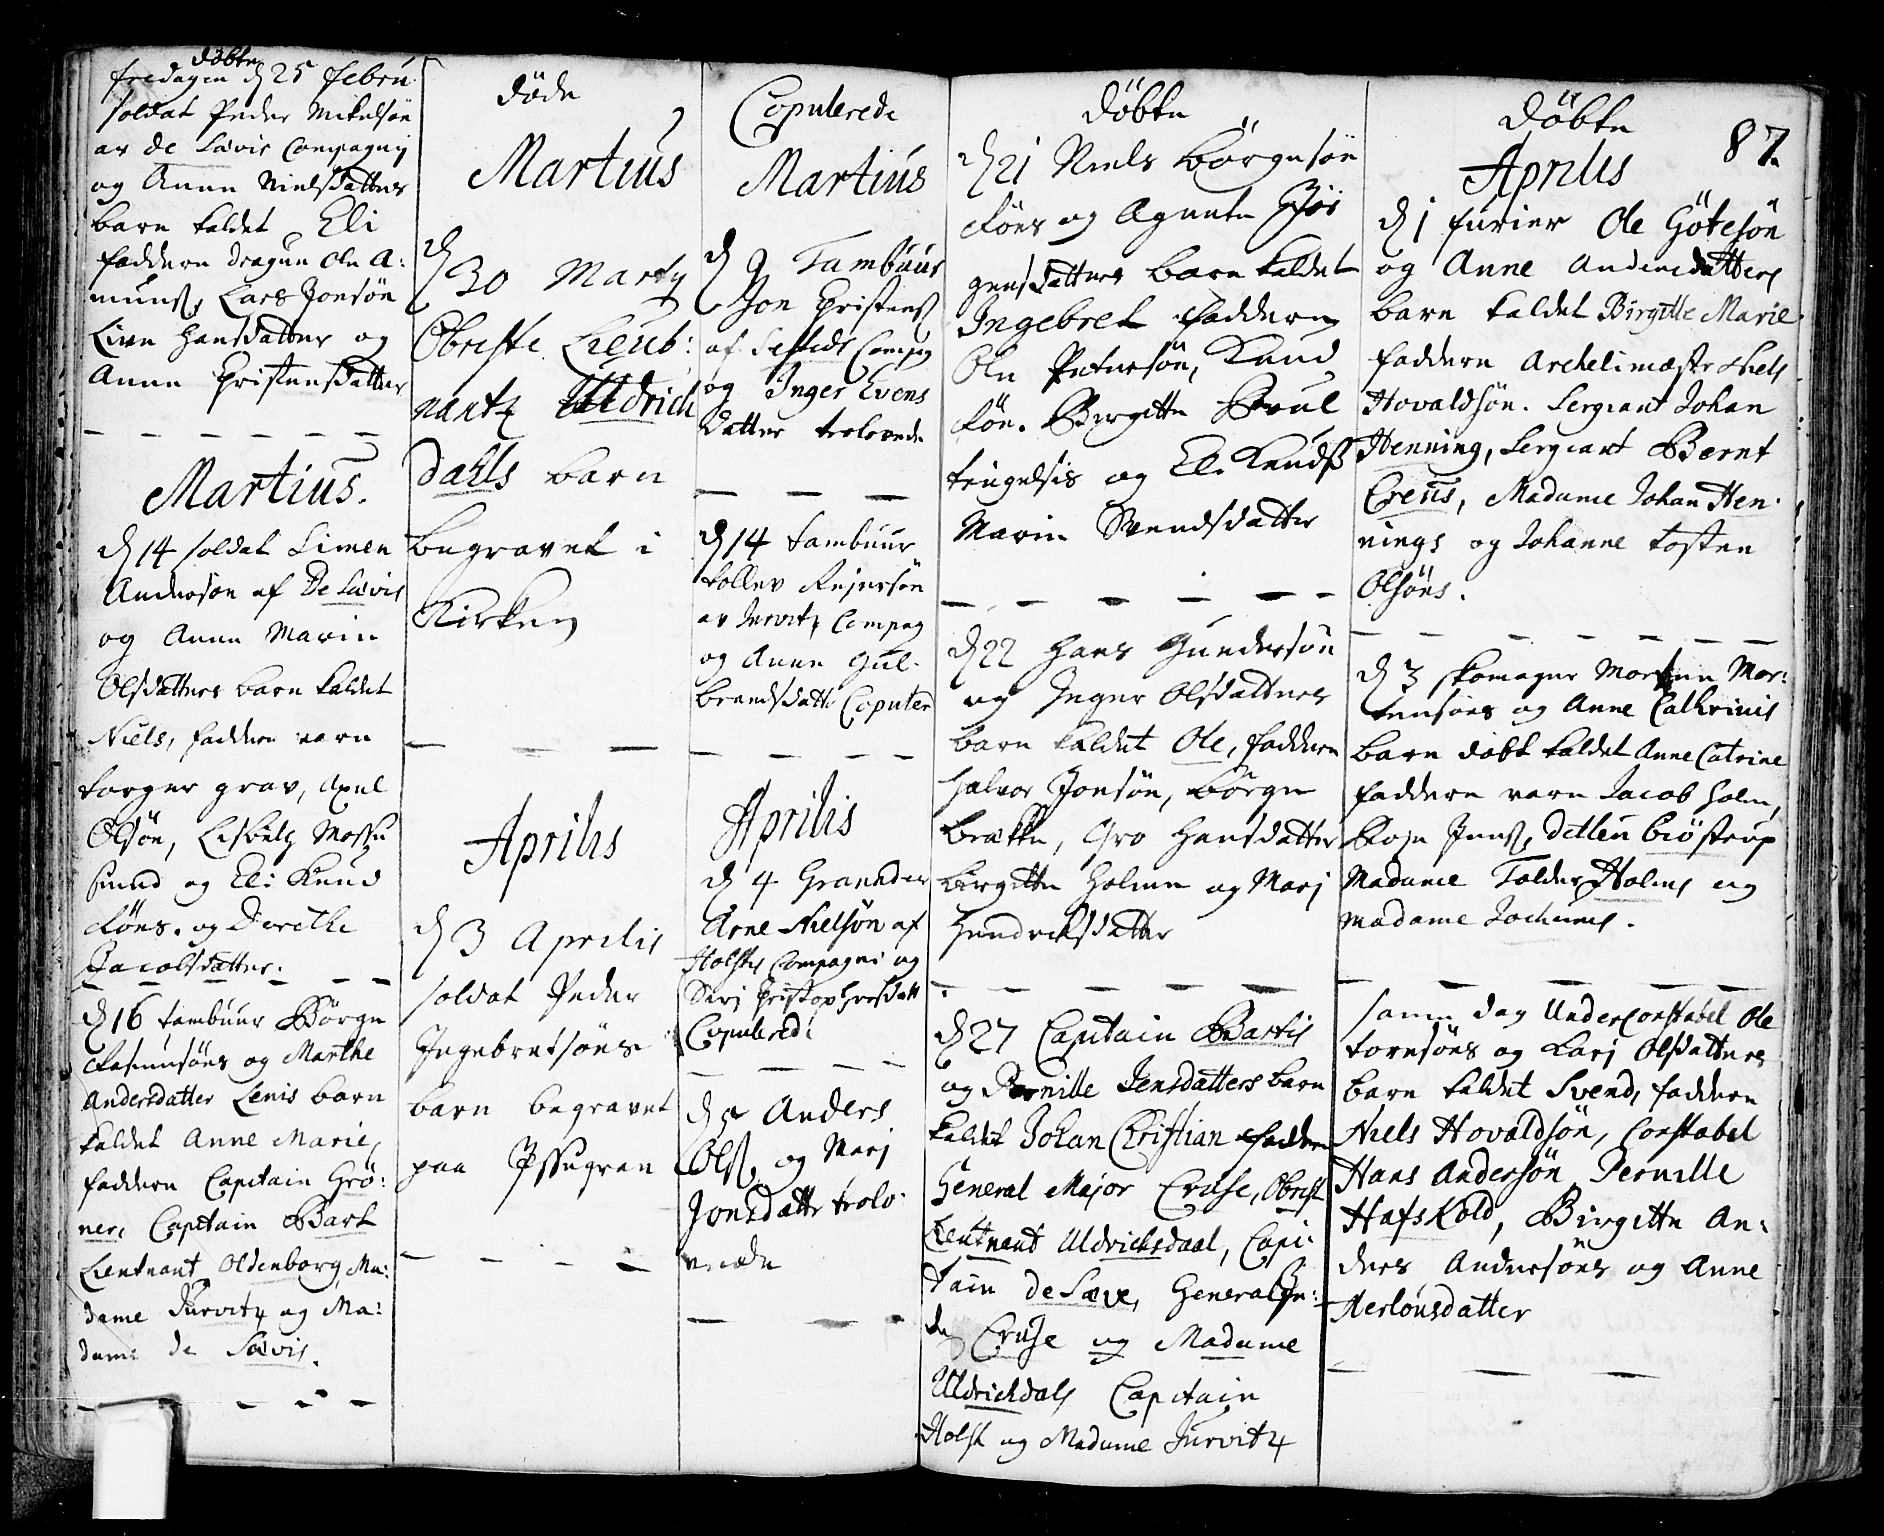 Döbte
fredagen d 25 Febru
soldat Peder Mikelsön
av de Sævis Compagnj
og Anne Nielsdatters
barn kaldet Eli
faddere dragun Ole A:
munds, Lars Jonsön
Live Hansdatter og
Anne Christensdatter
Martius.
d 14 soldat Simen
Andersön af De Sævis
og Anne Marie
Olsdatters barn kaldet
Niels, faddere varn
torger grav, Axel
Olsön, Lisbeth Mosse
sund og Eli Knud
söns. og Dorethe
Jacobsdatter.
d 16 tambuur Börge
Rasmusöns og Marthe
Andersdatter Lenis barn
kaldet Anne Marie,
faddere Capitain Grö:
ner, Capitain Bart
Lieutnant Oldenborg Ma:
dame Jurvitz og Ma:
dame de Sævis.
döde
Martius
d 30 Marty
Obriste Lieut:
nantz Uldrich
dahls barn
begravet i
Kirken
Aprilis
d 3 Aprilis
soldat Peder
Ingebretsöns
barn begravet
paa
Copulerede
Martius
d 9 Tambuur
Jon Christens
af Compag
og Inger Evens
datter trolovede
d 14 tambuur
tollev Rejersön
av Jurvitz Compag
og Anne Gul
brandsdatte Copuler
Aprilis
d 4 Granader
Arne Nielsön af
Holstes Compagni og
Sirj Christophersdatt
Copulered:
d 5 Anders
Ols, og Marj
Jonsdatte trolo
vede
Döbte
d 21 Niels Börgesön
söns og Agnete Gjör
gensdatters barn kaldet
Ingebret faddere
Ole Petersön, Knud
sön. Birgitte Poul
tengelsis og Eli Knuds
Marie Svendsdatter
d 22 Hans Gundersön
og Inger Olsdatters
barn kaldet Ole, faddere
Halvor Jonsön, Börge
Brække, Gro Hansdatter
birgitte Holmen og Marj
Hendricksdatter
d 27 Capitain Bartis
og Pernille Jensdatters barn
kaldet Johan Christian faddere
General Major Cruse, Obrist
Lieutnant Uldricksdaal, Capi
tain de Sæve, General In:
de Cruse og Madame
Uldrichdals Capitain
Holst og Madame Jurvitz
Döbte
87.
Aprilis
d 1 furier Ole Götesön
og Anne Andersdatters
barn kaldet Birgitte Marie
faddere Archelimæstr Niels
Hovaldsön. Sergiant Johan
Henning, Sergiant Bernt
Creüs, Madame Johan Hen
nings og Johanne tosten
Olsöns.
d 3 skomager Morten Mor:
tensöns og Anne Cathrinis
barn döbt kaldet Anne Catrine
faddere varn Jacob Holm,
Roje Jens, Detleu Biöstrup
Madame Tolder Holms og
Madame Jochums.
samme dag UnderConstabel Ole
torsöns og Karj Olsdatters
barn kaldet Svend, faddere
Niels Hovaldsön, Constabel
Hans Andersön Pernille
Hafskold, Birgitte An:
ders Andersöns og Anne
Herlousdatter